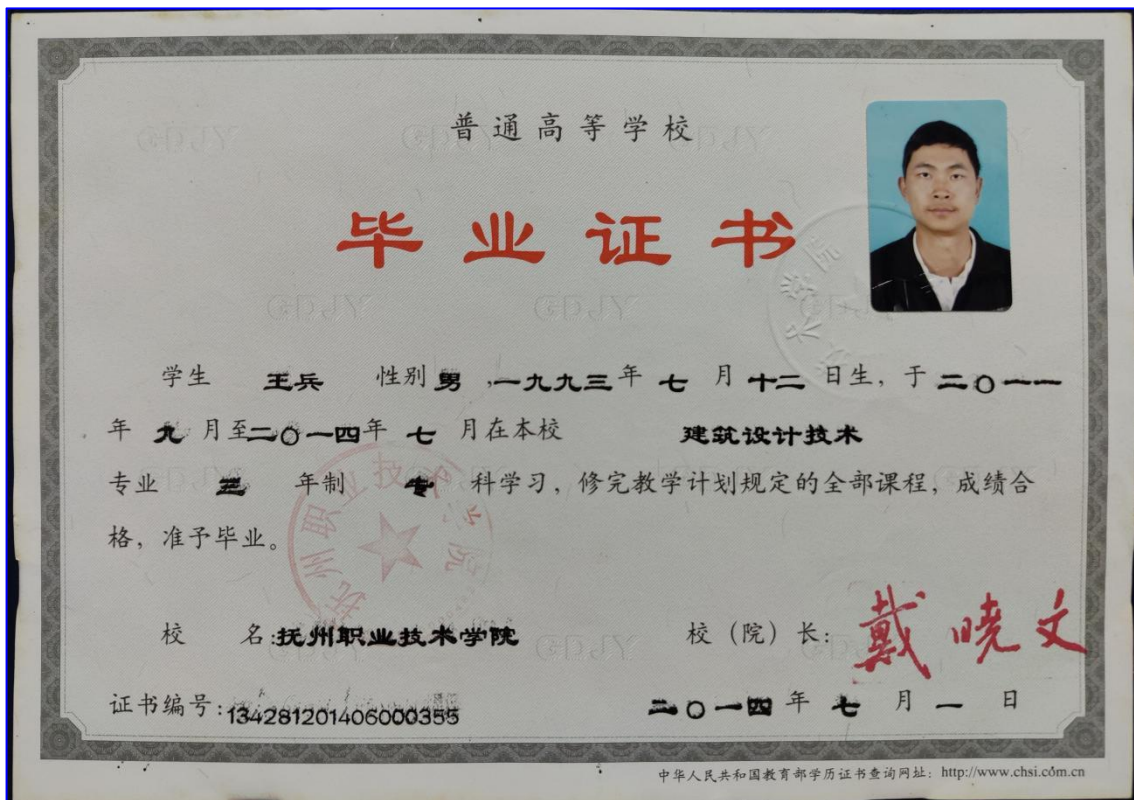 普通高等学校
毕业证书
学生 王兵 性别 男 ,一九九三 年 七 月 十二 日生, 于 二〇一一
年 九 月至二〇一四年 七 月在本校 建筑设计技术
专业 三 年制 专 科学习, 修完教学计划规定的全部课程, 成绩合
格, 准予毕业。
抚州职业技术学院
校 名:抚州职业技术学院 校(院)长: 戴晓文
证书编号:134281201406000355 二〇一四 年 七 月 一 日
中华人民共和国教育部学历证书查询网址: http://www.chsi.com.cn